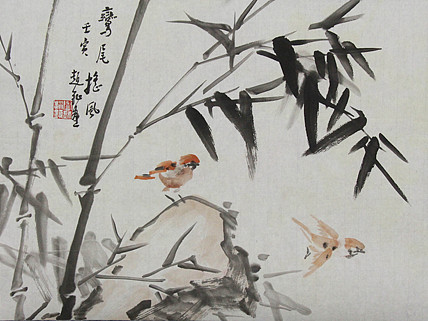 鸞尾搖風
壬寅
趙